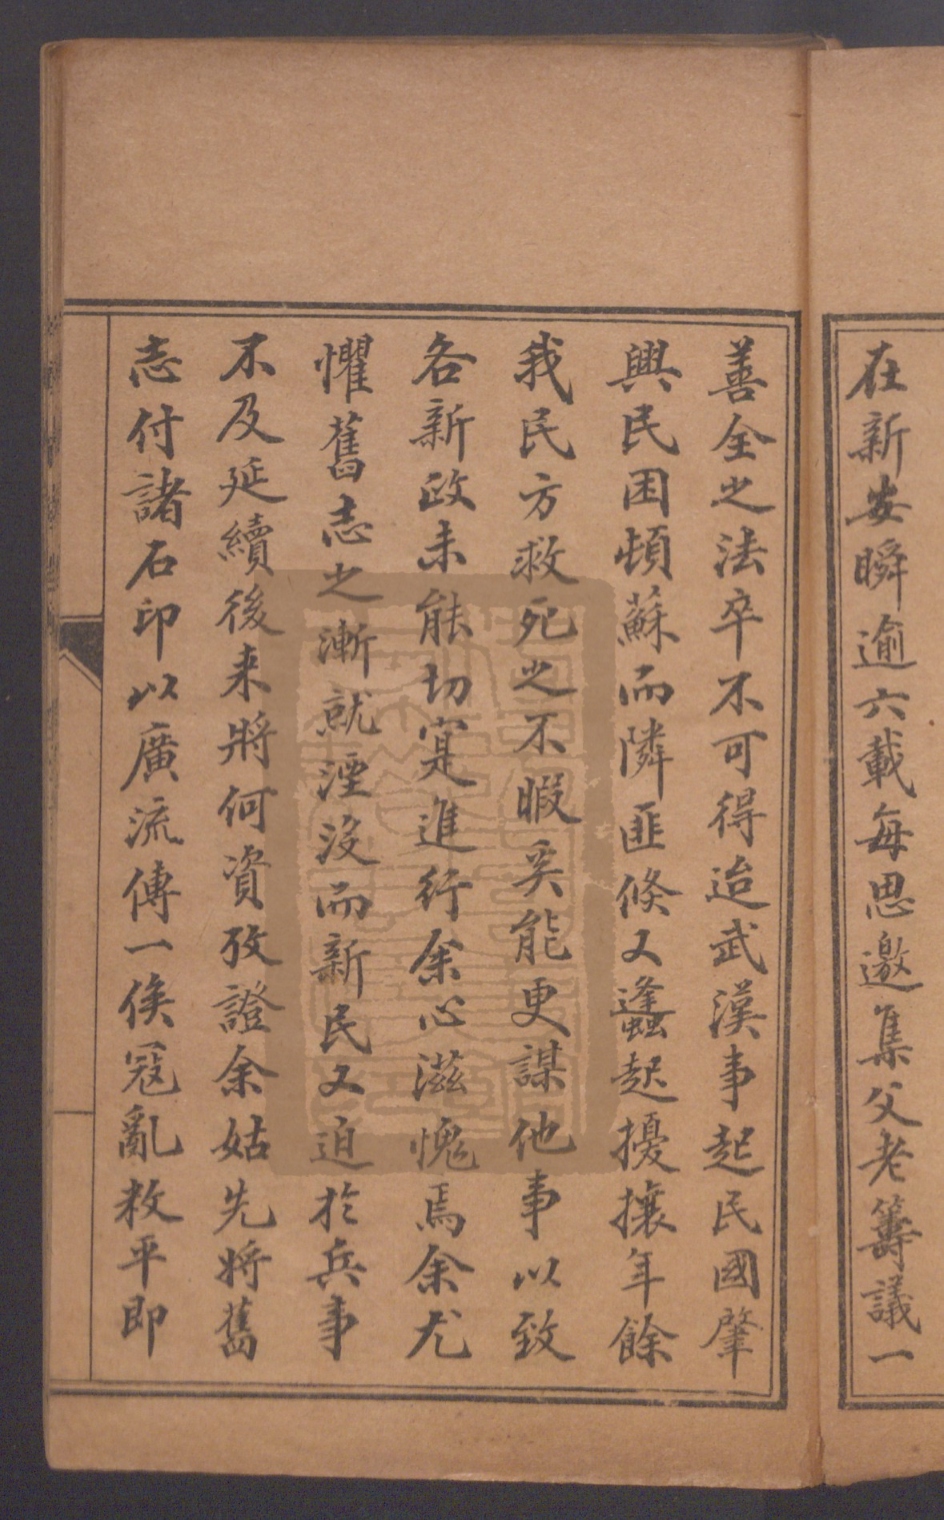 在新安瞬逾六載每思邀集父老籌議一
善全之法卒不可得迨武漢事起民國肇
興民困頓蘇而隣匪倏又蠭起擾攘年餘
我民方救死之不暇奚能更謀他事以致
各新政未能切寔進行余心滋愧焉余尤
懼舊志之漸就湮沒而新民又迫於兵事
不及延續後来將何資攷證余姑先將舊
志付諸石印以廣流傳一俟冦亂敉平即